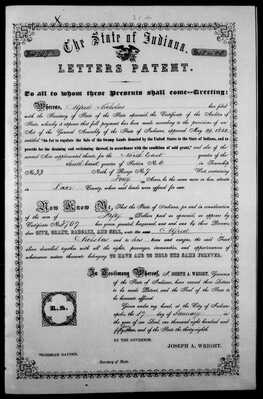 The State of Indiana.
LETTERS PATENT.
To all to whom these Presents shall come—Greeting:
Whereas, Alfred has filed
with the Secretary of State of the State aforesaid the Certificate of the Auditor of
State, whereby it appears that full payment has been made according to the provisions of an
Act of the General Assembly of the State of Indiana, approved May 29, 1852,
entitled "An Act to regulate the Sale of the Swamp Lands donated by the United States to the State of Indiana, and to
provide for the draining and reclaiming thereof, in accordance with the condition of said grant," and also of the
several Acts supplemental thereto, for the North East quarter of the
South East quarter of Section No. 6 Township
No. 33 North of Range No. 7 West, containing
Forty Acres, be the same more or less, situate
in County, when said lands were offered for sale.
Now Know Ye, That the State of Indiana, for and in consideration
of the sum of Fifty Dollars paid as aforesaid, as appears by
Certificate No.
GIVE, GRANT, BARGAIN, AND SELL, unto the said Alfred
heirs and assigns, the said Tract
above described, together with all the rights, privileges, immunities, and appurtenances of
whatsoever nature thereunto belonging, TO HAVE AND TO HOLD THE SAME FOREVER.
In Testimony Whereof, I, JOSEPH A. WRIGHT, Governor
of the State of Indiana, have caused these Letters
to be made Patent, and the Seal of the State to
be hereunto affixed.
Given under my hand, at the City of Indianapolis,
the day of January in
the year of our Lord, one thousand eight hundred and
and of the State the thirty-eighth.
BY THE GOVERNOR,
JOSEPH A. WRIGHT.
Secretary of State.